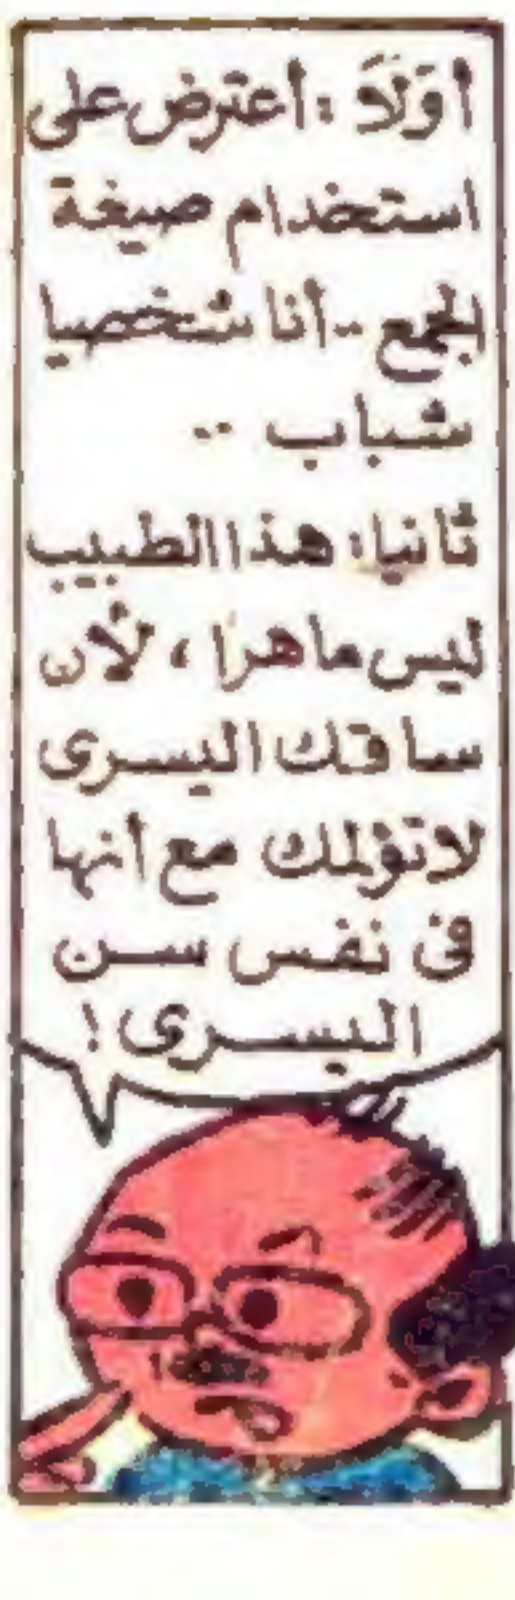 أوَلَاَ : أعترض على
استخدام صيغة
الجمع .. أنا شخصيا
شباب ..
ثانيا : هذا الطبيب
ليس ماهرا ، لأن
ساقك اليسرى
لا تؤلمك مع أنها
فى نفس سن
اليسرى !